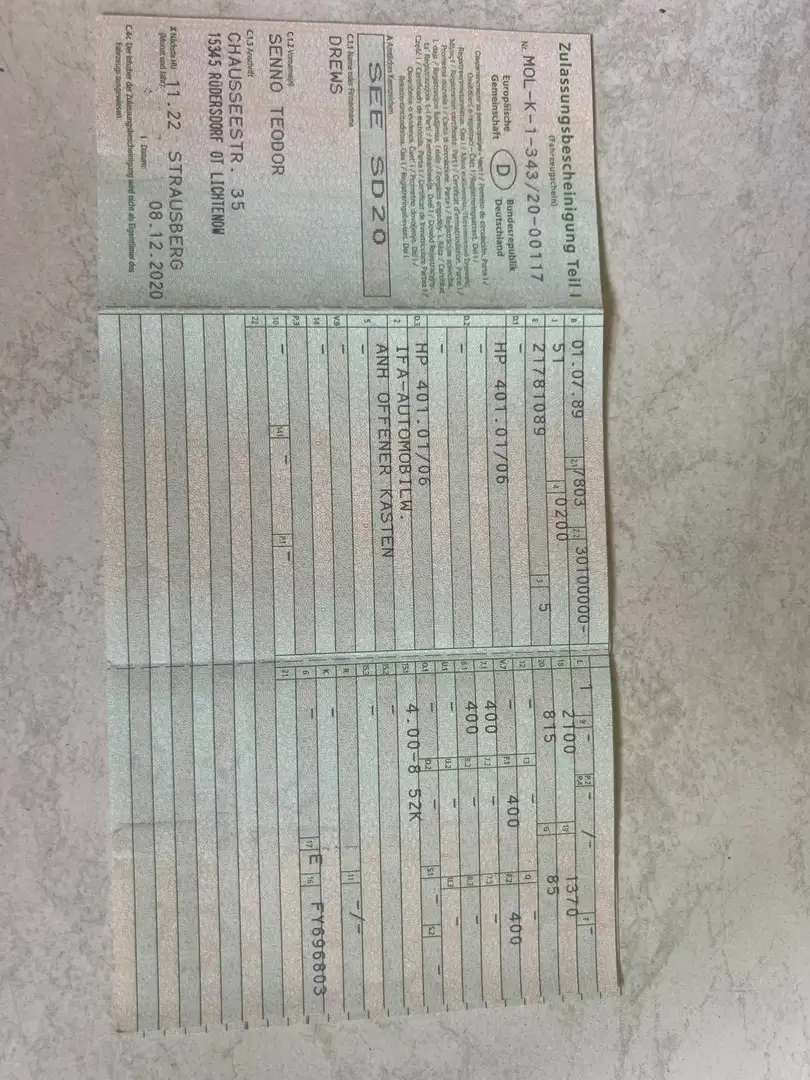 Zulassungsbescheinigung Teil I
(Fahrzeugschein)
Nr. MOL-K-1-343/20-00117
Europäische Gemeinschaft
D
Bundesrepublik Deutschland
A Amtliches Kennzeichen
SEE SD20
C.1.1 Name oder Firmenname
DREWS
C.1.2 Vorname(n)
SENNO TEODOR
C.1.3 Anschrift
CHAUSSEESTR. 35
15345 RÜDERSDORF OT LICHTENOW
X Nächste HU (Monat und Jahr):
11.22 STRAUSBERG
Datum: 08.12.2020
C.4c Der Inhaber der Zulassungsbescheinigung wird nicht als Eigentümer des Fahrzeugs ausgewiesen.
B 01.07.89 2.1 7803 2.2 30100000-
J 51 4 0200
E 21781089 3 5
D.1 -
HP 401.01/06
-
D.2 -
-
D.3 HP 401.01/06
2 IFA-AUTOMOBILW.
ANH OFFENER KASTEN
5 -
V.9 -
14 -
P.3
10 - 14.1 - P.1 -
22
L 1 9 - P.2 P.4 - /- T -
18 2100 19 1370
20 815 G 85
12 - 13 - Q -
V.7 - F.1 400 F.2 400
7.1 400 7.2 - 7.3 -
8.1 400 8.2 - 8.3 -
U.1 - U.2 - U.3 -
O.1 - O.2 - S.1 - S.2 -
15.1 4.00-8 52K
15.2 -
15.3 -
R 11 -/-
K -
6 - 17 E 16 FY696803
21